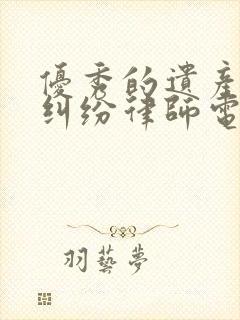 優秀的遺產
糾紛律師電
羽藝夢